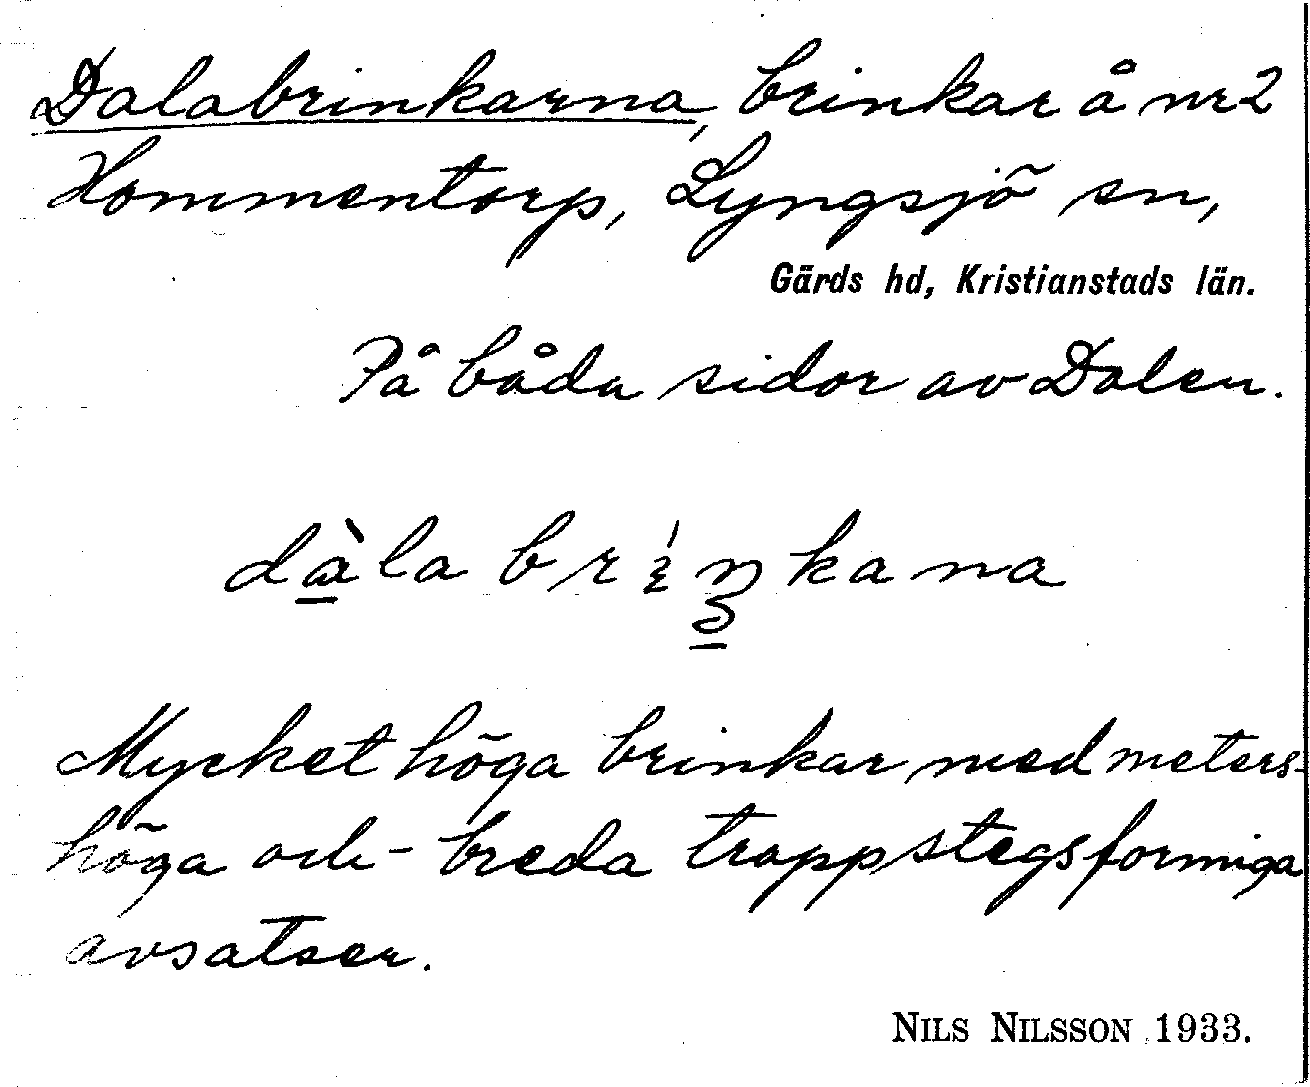 Dalabrinkarna, brinkar å nr 2
Hommentorp, Lyngsjö sn,
Gärds hd, Kristianstads län.
På båda sidor av Dalen.
dàla brıŋkana
Mycket höga brinkar med meters-
höga och -breda trappstegsformiga
avsatser.
NILS NILSSON 1933.